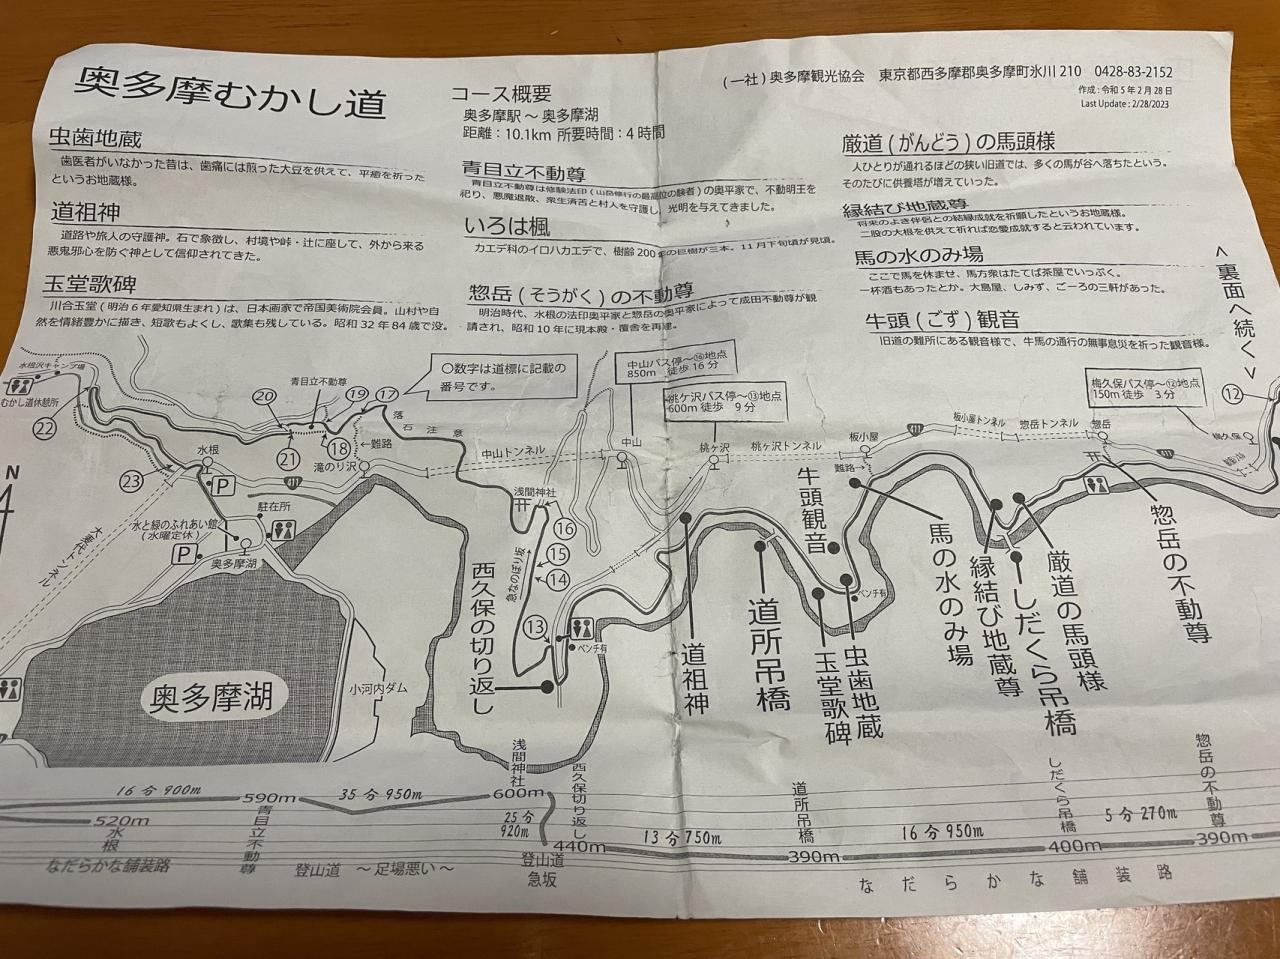 奥多摩むかし道
コース概要
奥多摩駅 ～ 奥多摩湖
距離：10.1km 所要時間：4 時間
(一社) 奥多摩観光協会　東京都西多摩郡奥多摩町氷川 210　0428-83-2152
作成：令和 5 年 2 月 28 日
Last Update : 2/28/2023
虫歯地蔵
歯医者がいなかった昔は、歯痛には煎った大豆を供えて、平癒を祈った
というお地蔵様。
道祖神
道路や旅人の守護神。石で象徴し、村境や峠・辻に座して、外から来る
悪鬼邪心を防ぐ神として信仰されてきた。
玉堂歌碑
川合玉堂 (明治 6 年愛知県生まれ) は、日本画家で帝国美術院会員。山村や自
然を情緒豊かに描き、短歌もよくし、歌集も残している。昭和 32 年 84 歳で没。
青目立不動尊
青目立不動尊は修験法印 (山岳修行の最高位の験者) の奥平家で、不動明王を
祀り、悪魔退散、衆生済苦と村人を守護し、光明を与えてきました。
いろは楓
カエデ科のイロハカエデで、樹齢 200 年の巨樹が三本。11 月下旬頃が見頃。
惣岳 (そうがく) の不動尊
明治時代、水根の法印奥平家と惣岳の奥平家によって成田不動尊が観
請され、昭和 10 年に現本殿・覆舎を再建。
厳道 (がんどう) の馬頭様
人ひとりが通れるほどの狭い旧道では、多くの馬が谷へ落ちたという。
そのたびに供養塔が増えていった。
縁結び地蔵尊
将来のよき伴侶との結縁成就を祈願したというお地蔵様。
二股の大根を供えて祈れば恋愛成就すると云われています。
馬の水のみ場
ここで馬を休ませ、馬方衆はたてば茶屋でいっぷく。
一杯酒もあったとか。大島屋、しみず、ごーろの三軒があった。
牛頭 (ごず) 観音
旧道の難所にある観音様で、牛馬の通行の無事息災を祈った観音様。
＜ 裏面へ続く ＞
○数字は道標に記載の
番号です。
中山バス停～⑯地点
850m 徒歩 16 分
桃ケ沢バス停～⑬地点
600m 徒歩 9 分
梅久保バス停～⑫地点
150m 徒歩 3 分
水根沢キャンプ場
むかし道休憩所
22
23
N
水根
P
411
駐在所
水と緑のふれあい館
(水曜定休)
P
奥多摩湖
大麦代トンネル
奥多摩湖
小河内ダム
青目立不動尊
20
21
19
18
17
落石注意
←難路
滝のり沢
中山トンネル
中山
浅間神社
16
15
14
13
急なのぼり坂
西久保の切り返し
ベンチ有
桃ヶ沢
桃ヶ沢トンネル
板小屋
難路→
411
板小屋トンネル
惣岳トンネル
惣岳
梅久保
12
道祖神
道所吊橋
牛頭観音
玉堂歌碑
虫歯地蔵
ベンチ有
馬の水のみ場
縁結び地蔵尊
しだくら吊橋
厳道の馬頭様
惣岳の不動尊
16 分 900m
520m
水根
なだらかな舗装路
590m
青目立不動尊
35 分 950m
登山道　～足場悪い～
浅間神社
600m
25 分
920m
登山道
急坂
西久保切り返し
440m
13 分 750m
道所吊橋
390m
16 分 950m
しだくら吊橋
400m
5 分 270m
惣岳の不動尊
390m
なだらかな舗装路